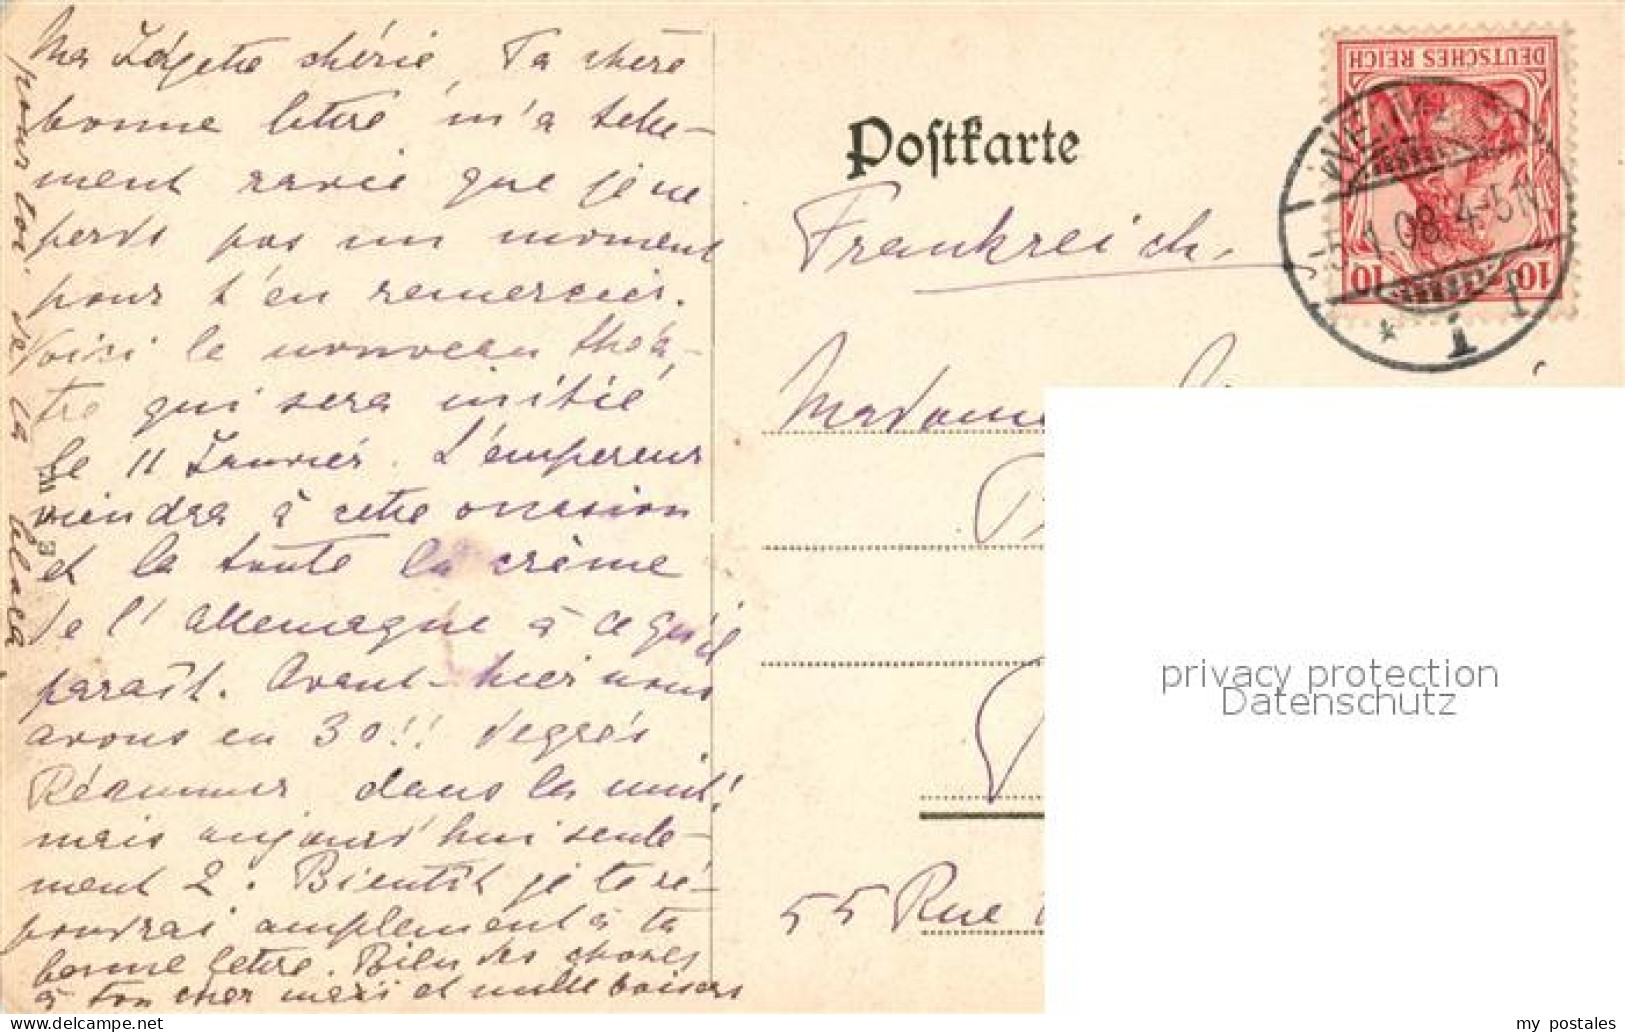 Ma chérie, Ta chère
bonne lettre m'a telle-
ment ravie que je ne
perds pas un moment
pour t'en remercier.
Voici le nouveau théâ-
tre qui sera initié
le 11 Janvier. L'empereur
viendra à cette occasion
et la toute la crème
de l'Allemagne à ce qu'il
paraît. Avant-hier nous
avons eu 30!! degrés
Réaumur dans la nuit!
mais aujourd'hui seule-
ment 2. Bientôt je te ré-
pondrai amplement à ta
bonne lettre. Bien des choses
à ton cher mari et mille baisers
pour toi de la
Postkarte
Frankreich.
Madame
55 Rue
DEUTSCHES REICH
10 10
WEIMAR
5.1.08.4-5N
* 1 f
privacy protection
Datenschutz
www.delcampe.net
my_postales